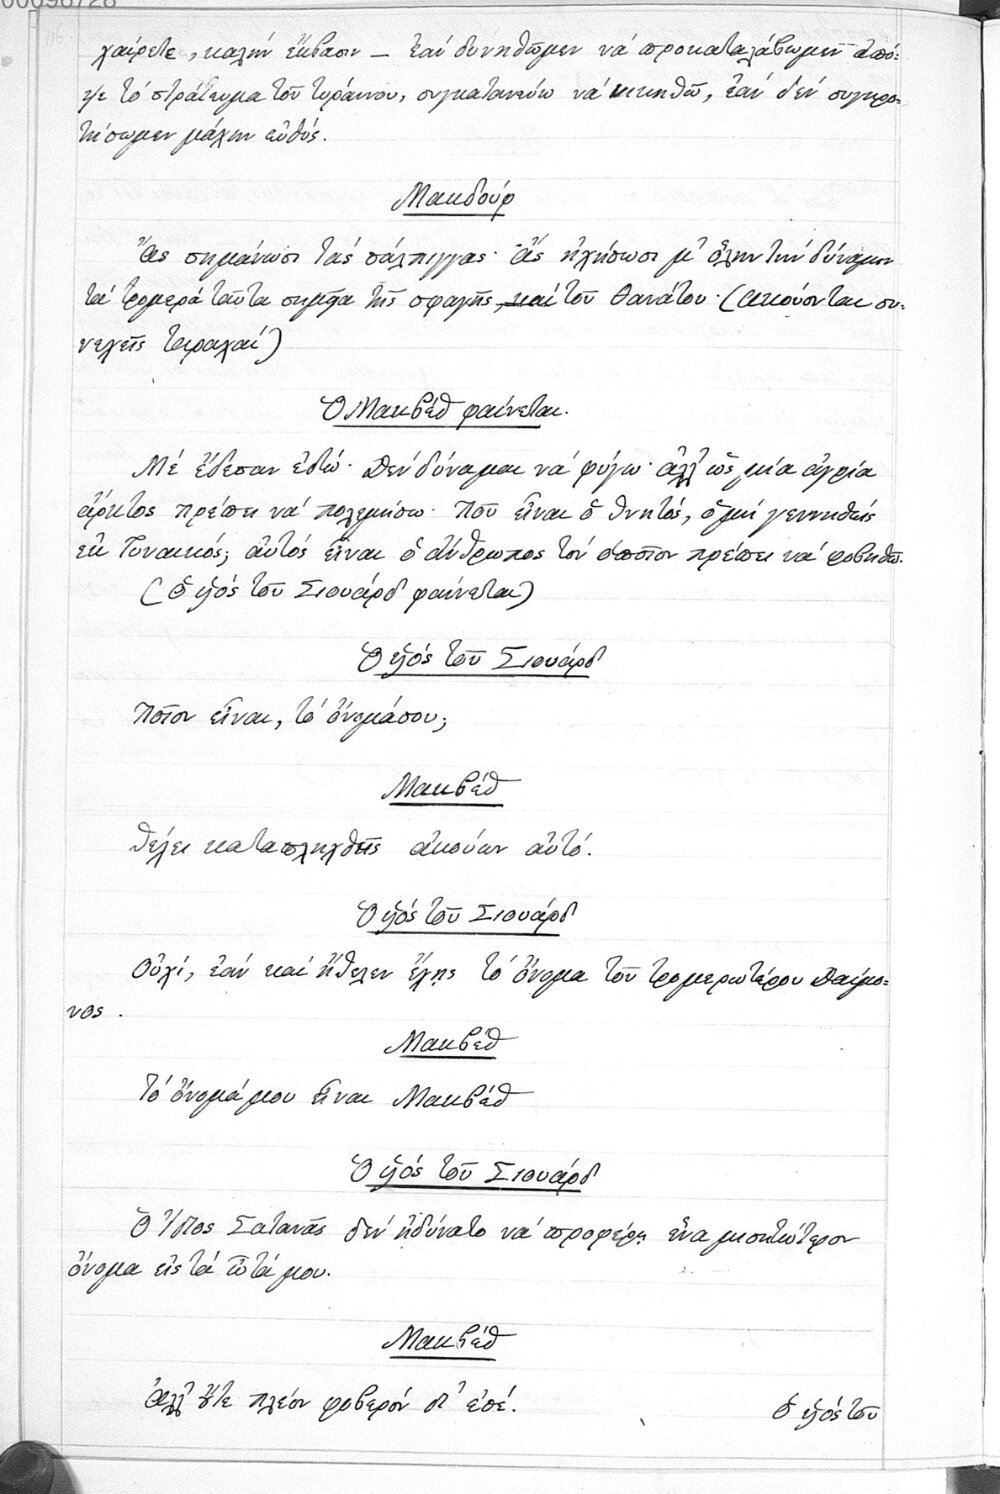 00098728
116.
χαίρετε, καλήν ἔκβασιν — ἐάν δυνηθῶμεν νά προκαταλάβωμεν ἀπό-
ψε τό στράτευμα τοῦ τυράννου, συγκατανεύω νά νικηθῶ, ἐάν δέν συγκρο-
τήσωμεν μάχην εὐθύς.
Μακδούφ
Ἄς σημάνωσι τάς σάλπιγγας· ἄς ἠχήσωσι μ' ὅλην τήν δύναμιν
τά τρομερά ταῦτα σημεῖα τῆς σφαγῆς, καί τοῦ θανάτου· (ἀκούονται συ-
νεχεῖς ταραχαί)
Ὁ Μακβέθ φαίνεται.
Μέ ἔδεσαν ἐδῶ· δέν δύναμαι νά φύγω· ἀλλ' ὡς μία ἀγρία
ἄρκτος πρέπει νά πολεμήσω. Ποῦ εἶναι ὁ θνητός, ὁ μή γεννηθείς
ἐκ Γυναικός; αὐτός εἶναι ὁ ἄνθρωπος τόν ὁποῖον πρέπει νά φοβηθῶ.
(Ὁ υἱός τοῦ Σιουάρδ φαίνεται)
Ὁ υἱός τοῦ Σιουάρδ
Ποῖον εἶναι, τό ὄνομά σου;
Μακβέθ
Θέλει καταπληχθῆς ἀκούων αὐτό.
Ὁ υἱός τοῦ Σιουάρδ
Οὐχί, ἐάν καί ἤθελεν ἔχῃς τό ὄνομα τοῦ τρομερωτέρου Δαίμο-
νος.
Μακβέθ
Τό ὄνομά μου εἶναι Μακβέθ
Ὁ υἱός τοῦ Σιουάρδ
Ὁ ἴδιος Σατανᾶς δέν ἠδύνατο νά προφέρῃ ἕνα μισητώτερον
ὄνομα εἰς τά ὦτά μου.
Μακβέθ
Ἀλλ' οὔτε πλέον φοβερόν δι' ἐσέ.
Ὁ υἱός τοῦ